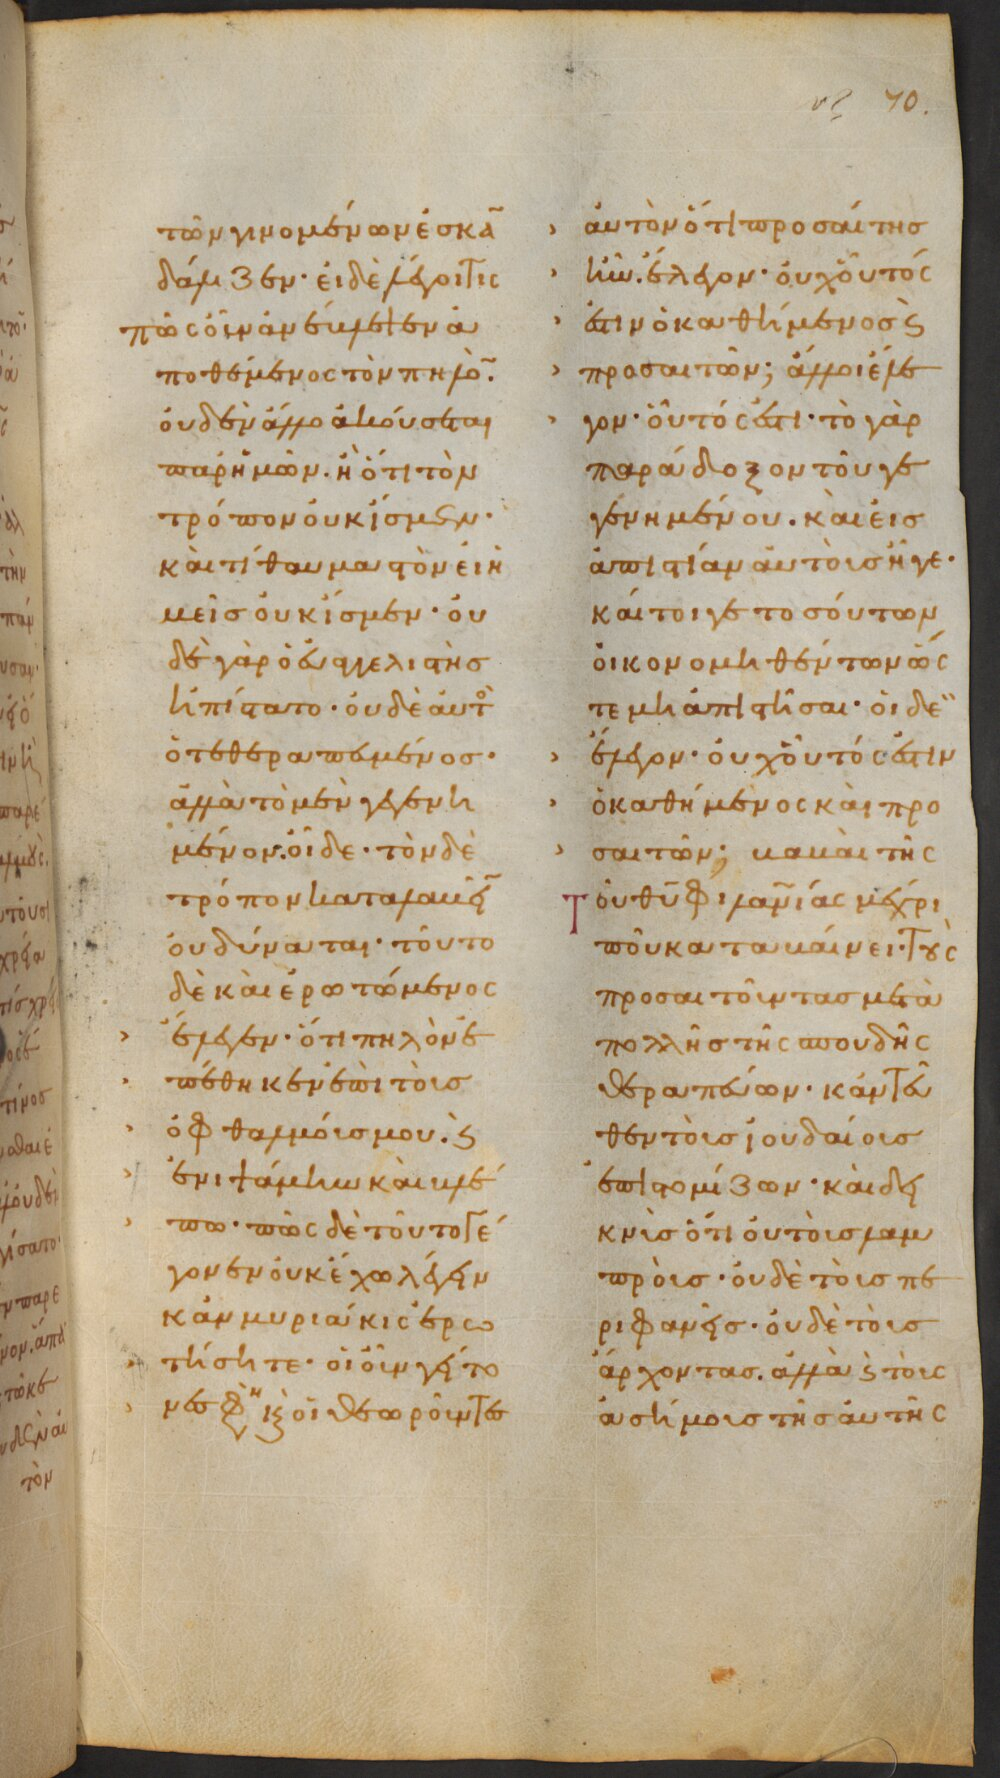 70.
τῶν γινομένων ἐσκα̃
δάλιζεν· εἰ δὲ λέγοι τις
πῶς οὖν ἀνέβλεψεν ἀ
ποθέμενος τὸν πηλὸ̃.
οὐδὲν ἄλλο ἀκούσεται
παρ ἡμῶν. ἢ ὅτι τὸν
τρόπον οὐκ ἴσμεν·
καὶ τί θαυμαστὸν εἰ ἡ
μεῖς οὐκ ἴσμεν· οὐ
δὲ γὰρ ὁ εὐαγγελιστὴς
ἠπίστατο· οὐδὲ αὐτὸ
ὁ τεθεραπευμένος·
ἀλλὰ τὸ μὲν γεγενη
μένον. οἶδε· τὸν δὲ
τρόπον καταλαβεῖ̃
οὐ δύναται· τοῦτο
δὲ καὶ ἐρωτώμενος
ἔλεγεν· ὅτι πηλὸν ἐ
πέθηκεν ἐπὶ τοὺς
ὀφθαλμούς μου. ϗ
ἐνιψάμην καὶ βλέ
πω· πῶς δὲ τοῦτο γέ
γονεν οὐκ ἔχω λέγειν
κἂν μυριάκις ἐρω
τήσητε· οἱ οὖν γείτο
νες φησὶ ϗ οἱ θεωροῦντες
αὐτὸν ὅτι προσαίτης
ἦν. ἔλεγον· οὐχ οὗτός
ἐστιν ὁ καθήμενος ϗ
προσαιτῶν; ἄλλοι ἔλε
γον· οὗτός ἐστι· τὸ γὰρ
παράδοξον τοῦ γε
γενημένου. καὶ εἰς
ἀπιστίαν αὐτοὺς ἦγε·
καίτοιγε τοσούτων
οἰκονομηθέντων ὥς
τε μὴ ἀπιστῆσαι· οἱ δὲ
ἔλεγον· οὐχ οὗτός ἐστιν
ὁ καθήμενος καὶ προ
σαιτῶν; βαβαὶ τῆς
τοῦ θῦ φιλανίας μέχρι
ποῦ καταβαίνει· τοὺς
προσαιτοῦντας μετὰ
πολλῆς τῆς σπουδῆς
θεραπεύων· κἀντεῦ
θεν τοὺς ἰουδαίους
ἐπιστομίζων· καὶ δει
κνὺς ὅτι οὐ τοὺς λαμ
προὺς· οὐδὲ τοὺς πε
ριφανεῖς· οὐδὲ τοὺς
ἄρχοντας. ἀλλὰ ϗ τοὺς
ἀσήμους τῆς αὐτῆς